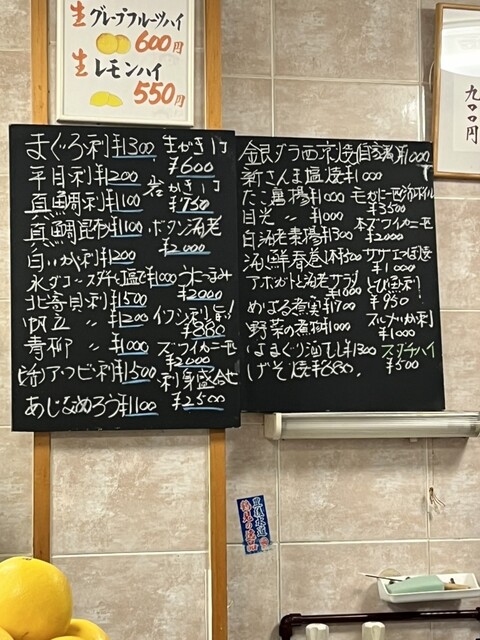 生グレープフルーツハイ
600円
生レモンハイ
550円
九〇〇円
まぐろ刺¥1300
平目刺¥1200
真鯛刺¥1100
真鯛昆布〆¥1100
白いか刺¥1200
水ダコ〃スダチ塩で¥1000
北寄貝刺¥1500
帆立〃¥1200
青柳〃¥1000
活アワビ刺¥1500
あじなめろう¥1100
生かき1コ
¥600
岩かき1コ
¥750
ボタン海老
¥2000
¥2000
イワシ刺
¥880
ズワイカニ一匹
¥2000
刺身盛合せ
¥2500
銀ダラ西京焼(自家製)¥1000
新さんま塩焼¥1000
たこ唐揚¥1000
目光〃¥1000
白海老素揚¥1300
海鮮春巻1本¥300
アボカドと海老サラダ
¥1000
めばる煮¥1700
野菜の煮物¥1000
はまぐり酒むし¥1300
げそ焼¥880.
¥3500
本ズワイカニ一匹
¥2000
サザエつぼ焼
¥1000
とび魚刺
¥950
スルメいか刺
¥1000
スダチハイ
¥500
豊後水道